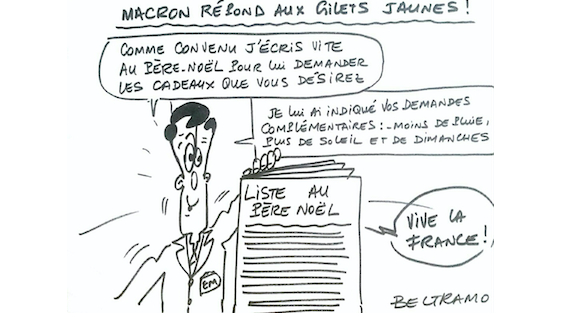 MACRON RÉPOND AUX GILETS JAUNES !
COMME CONVENU J'ÉCRIS VITE
AU PÈRE-NOËL POUR LUI DEMANDER
LES CADEAUX QUE VOUS DÉSIREZ
JE LUI AI INDIQUÉ VOS DEMANDES
COMPLÉMENTAIRES : - MOINS DE PLUIE,
PLUS DE SOLEIL ET DE DIMANCHES
LISTE AU
PÈRE NOËL
VIVE LA
FRANCE !
EM
BELTRAMO